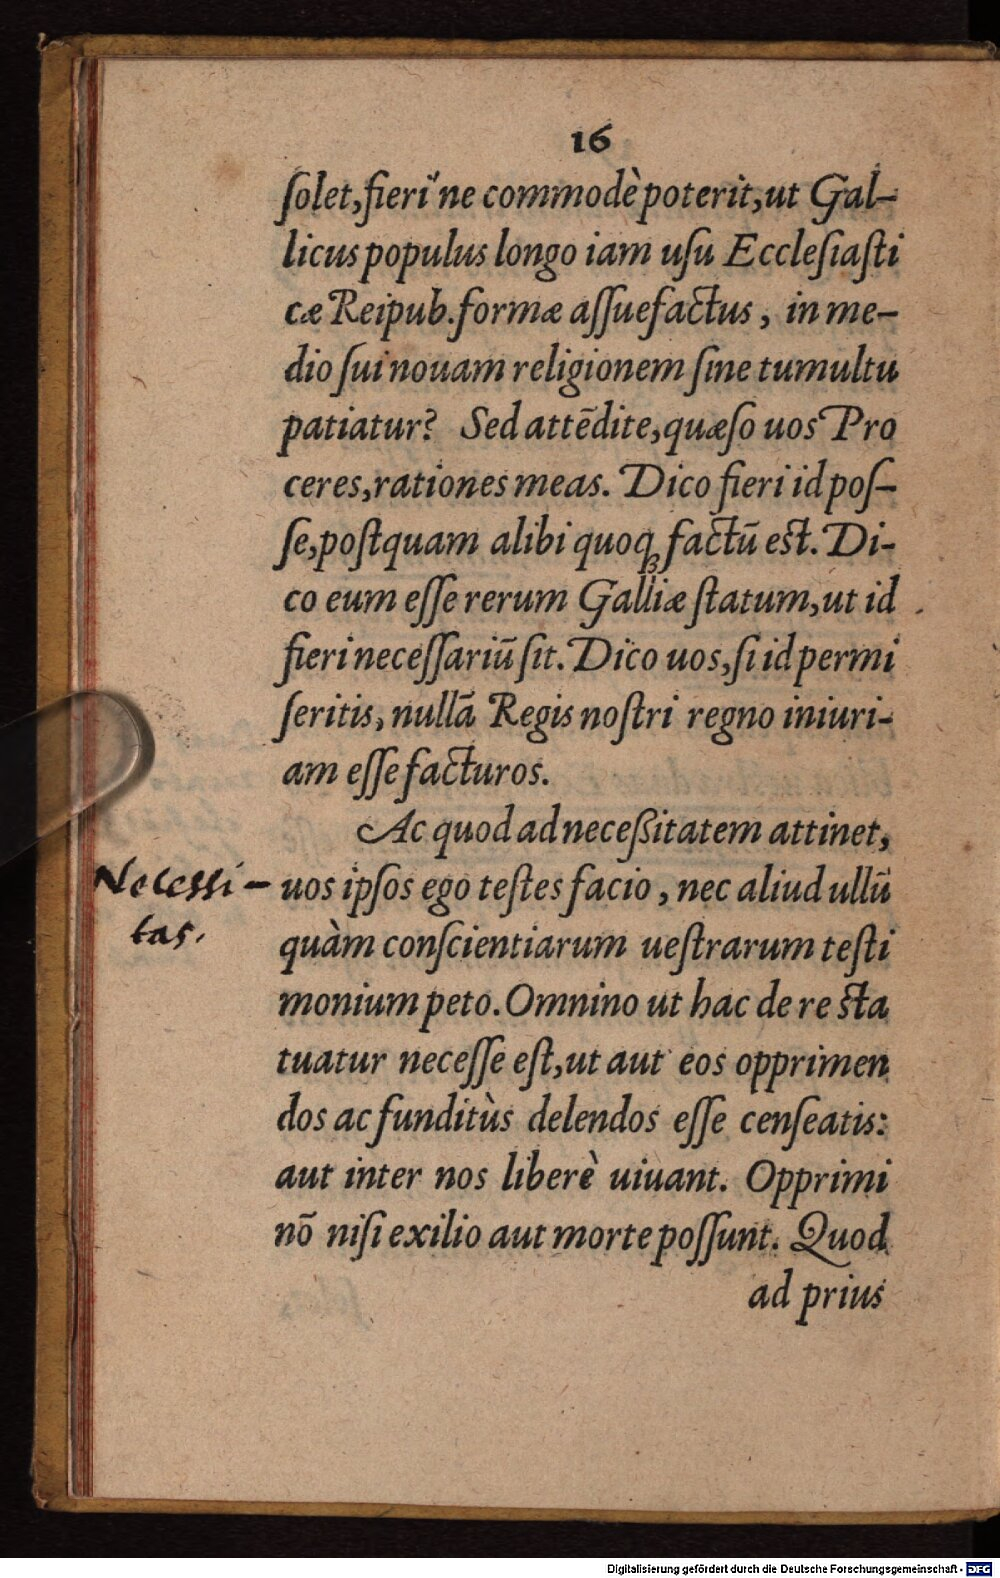 16
ſolet, fieri'ne commodè poterit, ut Gal-
licus populus longo iam uſu Eccleſiaſti
cæ Reipub. formæ aſſuefactus, in me-
dio ſui nouam religionem ſine tumultu
patiatur? Sed attēdite, quæſo uos Pro
ceres, rationes meas. Dico fieri id poſ-
ſe, poſtquam alibi quoq; factū eſt. Di-
co eum eſſe rerum Galliæ ſtatum, ut id
fieri neceſſariū ſit. Dico uos, ſi id permi
ſeritis, nullā Regis noſtri regno iniuri-
am eſſe facturos.
Ac quod ad neceßitatem attinet,
Necessi-
tas.
uos ipſos ego teſtes facio, nec aliud ullū
quàm conſcientiarum ueſtrarum teſti
monium peto. Omnino ut hac de re ſta
tuatur neceſſe eſt, ut aut eos opprimen
dos ac funditùs delendos eſſe cenſeatis:
aut inter nos liberè uiuant. Opprimi
nō niſi exilio aut morte poſſunt. Quod
ad prius
Digitalisierung gefördert durch die Deutsche Forschungsgemeinschaft - DFG